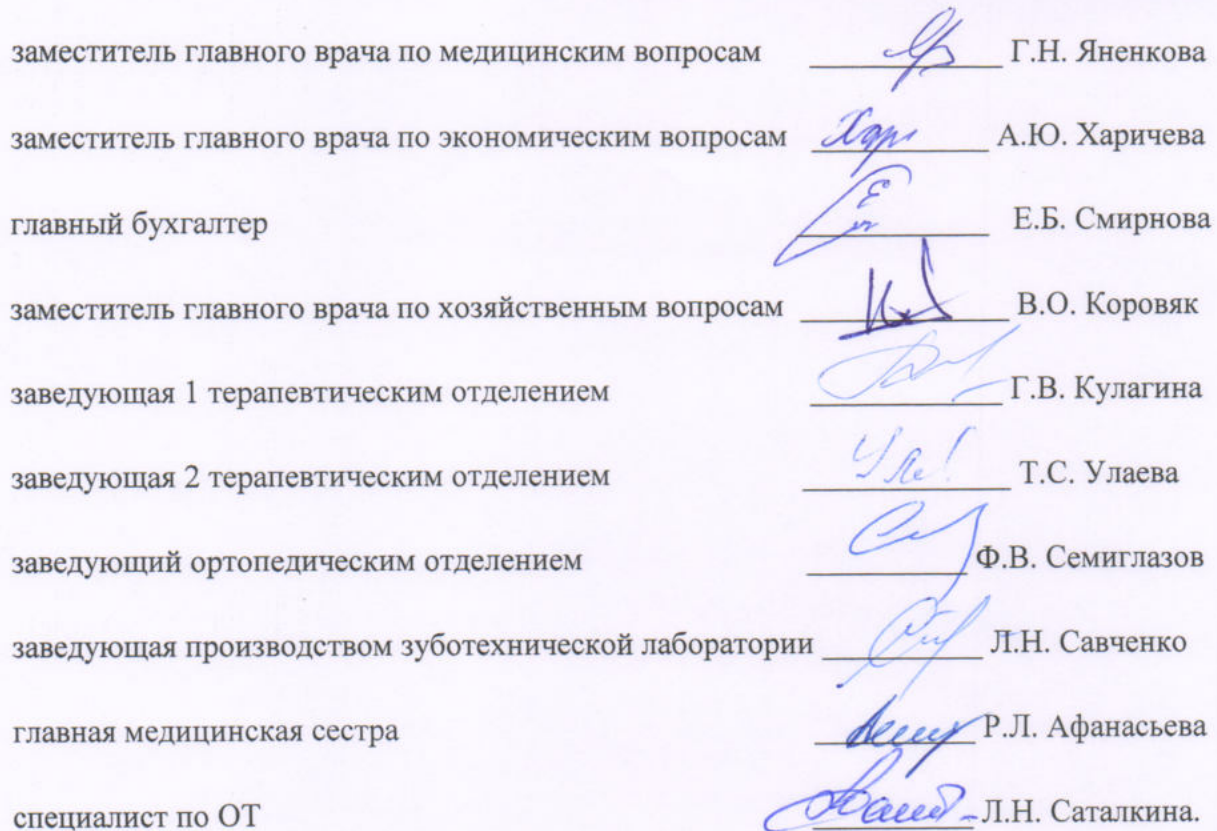 заместитель главного врача по медицинским вопросам Г.Н. Яненкова
заместитель главного врача по экономическим вопросам Хари А.Ю. Харичева
главный бухгалтер Е.Б. Смирнова
заместитель главного врача по хозяйственным вопросам В.О. Коровяк
заведующая 1 терапевтическим отделением Г.В. Кулагина
заведующая 2 терапевтическим отделением Т.С. Улаева
заведующий ортопедическим отделением Ф.В. Семиглазов
заведующая производством зуботехнической лаборатории Л.Н. Савченко
главная медицинская сестра Р.Л. Афанасьева
специалист по ОТ Л.Н. Саталкина.